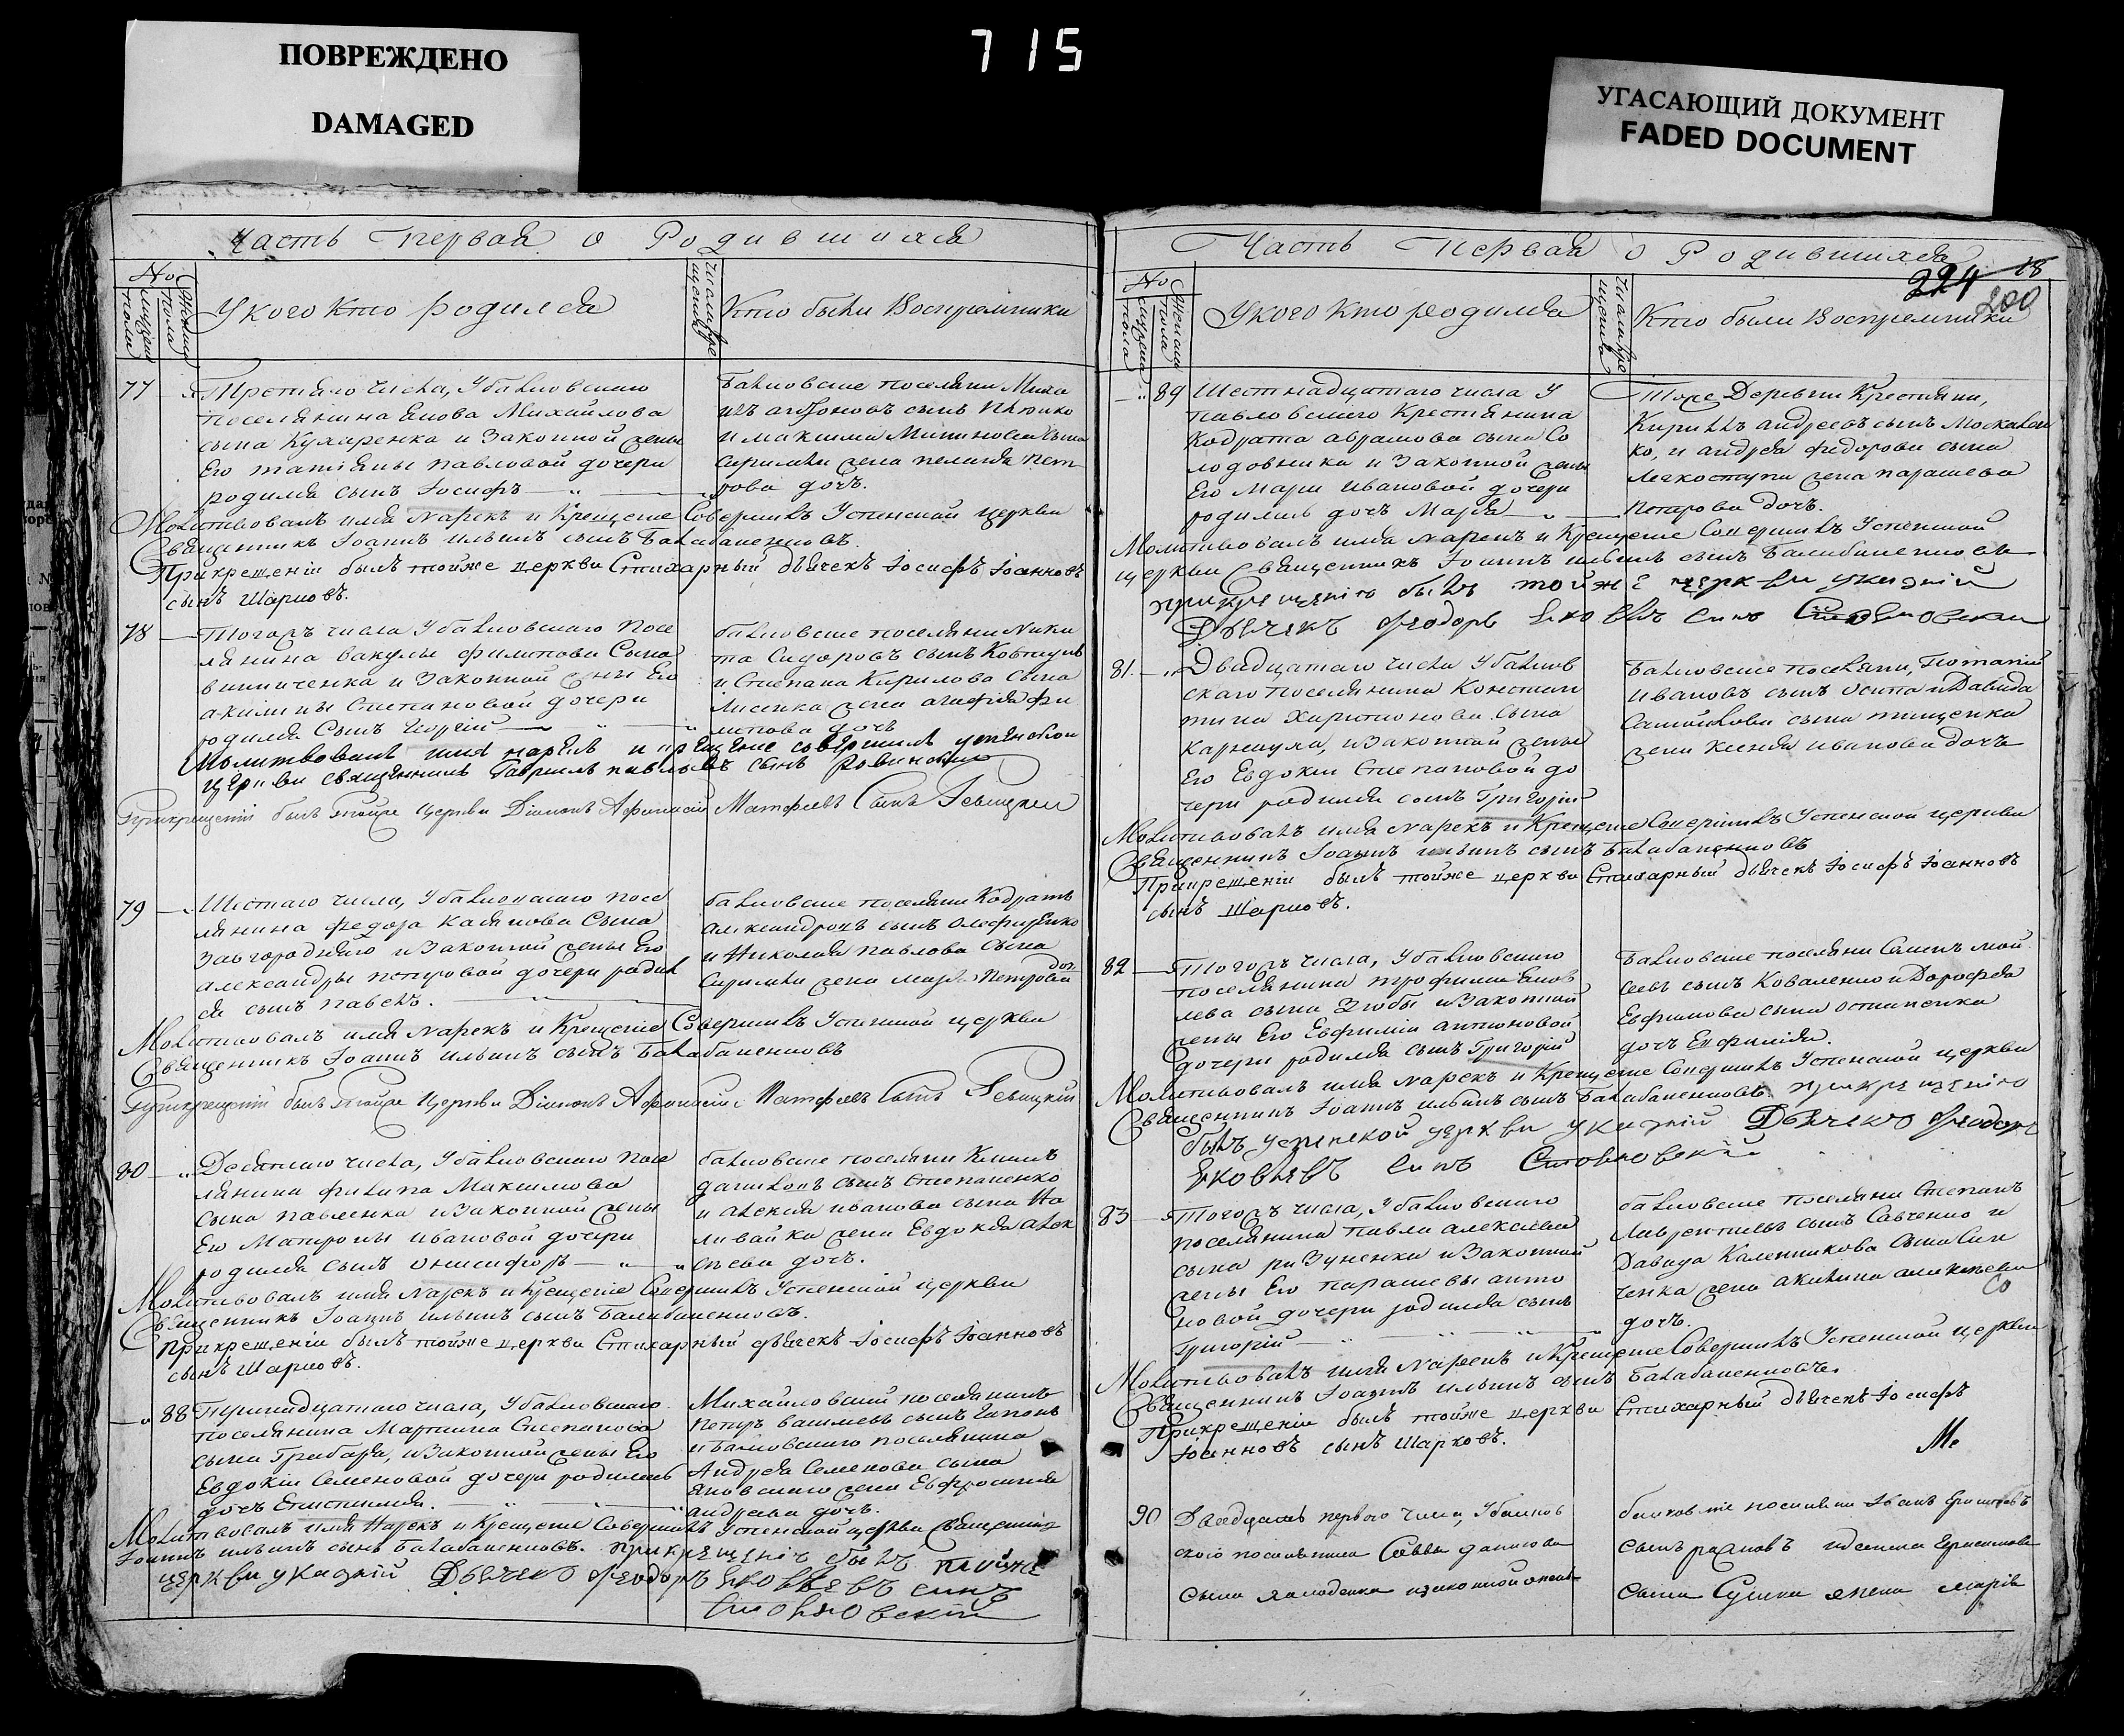 ПОВРЕЖДЕНО
DAMAGED
715
УГАСАЮЩИЙ ДОКУМЕНТ
FADED DOCUMENT
Часть первая о Родившихся
№
Мужеска пола
Женска пола
У кого кто родился
Число крещения
Кто были Восприемники
77 Третяго числа, У балковскаго
поселянина Якова Михайлова
сына Кухаренка и Законной жены
Его татіяны павловой дочери
родился сынъ Іосифъ
Балковские поселяни Миха
илъ сынъ
и максима сына
жена пелагия пет
рова дочь.
Молитвовалъ имя Нарекъ и Крещение Совершилъ Успенской церкви
Священникъ Іоаннъ ильинъ сынъ Балабаненковъ.
При крещеніи былъ тойже церкви Стихарный дьячекъ Іосифъ Іоанновъ
сынъ Шарковъ.
78 Тогожъ числа У балковскаго посе
лянина вакулы филипова Сына
винниченка и Законной жены Его
акилины Степановой дочери
родился Сынъ Георгій
балковские поселяни Ники
та Сидоровъ сынъ
и Степана Кирилова сына
Лисенка жена агафия фи
липова дочь
Молитвовалъ имя нарекъ и крещение совершилъ успенской
церкви священникъ Гавриилъ павловъ сынъ
При крещеніи былъ тойже Церкви Діаконъ Афанасій Матфеевъ Сынъ Левицкій
79 Шестаго числа, У балковскаго посе
лянина федора Сына
Завгородняго и Законной жены Его
александры петровой дочери родил
ся сынъ павелъ.
балковские поселяни Кодратъ
александровъ сынъ
и Николая павлова сына
жена Петрова доч
Молитвовалъ имя Нарекъ и Крещение Совершилъ Успенской церкви
Священникъ Іоаннъ ильинъ сынъ Балабаненковъ
При крещеніи былъ тойже Церкви Діаконъ Афанасій Матфеевъ Сынъ Левицкій
80 Десятаго числа, У балковскаго посе
лянина филипа Максимова
сына павленка и Законной жены
Его Матроны ивановой дочери
родился сынъ онисифоръ
балковские поселяни Климъ
даниловъ сынъ Степаненко
и алексия иванова сына На
ливайка жена Евдокия алек
сеева дочь.
Молитвовалъ имя Нарекъ и Крещение Совершилъ Успенской церкви
Священникъ Іоаннъ ильинъ сынъ Балабаненковъ.
При крещеніи былъ тойже церкви Стихарный дьячекъ Іосифъ Іоанновъ
сынъ Шарковъ.
88 Тринадцатаго числа, У балковскаго
поселянина Мартина Степанова
сына Грабаря, и Законной жены Его
Евдокіи Семеновой дочери родилась
дочь
Михайловский поселянинъ
петръ сынъ Гапонъ
и балковскаго поселянина
Андрея Семенова сына
жена Евфросиния
андреева дочь.
Молитвовалъ имя Нарекъ и Крещение Совершилъ Успенской церкви Священникъ
Іоаннъ ильинъ сынъ Балабаненковъ. при крещеніи былъ тойже
церкви указній Дьячекъ Феодоръ Яковлевъ синъ
Часть Первая о Родившихся
224 18
200
№
Мужеска пола
Женска пола
У кого кто родился
Число крещения
Кто были Восприемники
89 Шестнадцатаго числа У
павловского Крестянина
Кодрата абрамова сына Со
лодовника и Законной жены
Его Мари ивановой дочери
родилась дочь Мария
Тоже Деревни Крестяни,
Кирилъ андреевъ сынъ Москален
ко, и андрея федорова сына
Легкоступа жена парасчева
петрова дочь.
Молитвовалъ имя нарекъ и Крещение Совершилъ Успенской
церкви Священникъ Іоаннъ ильинъ сынъ Балабаненковъ
при крещению былъ тойже церкви указній
Дьячекъ Феодоръ Яковлевъ синъ
81. Двадцатаго числа У балков
скаго поселянина Констан
тина Харитонова сына
и Законной жены
Его Евдокіи Степановой до
чери родился сынъ Григорій
Балковские поселяни,
ивановъ сынъ осипа и Давида
Самойлова сына тищенка
жена Ксения иванова дочь
Молитвовалъ имя Нарекъ и Крещение Совершилъ Успенской церкви
Священникъ Іоаннъ ильинъ сынъ Балабаненковъ
При крещеніи былъ тойже церкви Стихарный дьячекъ Іосифъ Іоанновъ
сынъ Шарковъ.
82 Тогожъ числа, У балковскаго
поселянина трофима Яков
лева сына и Законной
жены Его Евфимии антоновой
дочери родился сынъ Григорій
Балковские поселяни Самъ мой
сеевъ сынъ Коваленко и Дорофея
Евфимова сына остапенка
дочь Евфимия.
Молитвовалъ имя Нарекъ и Крещение Совершилъ Успенской церкви
Священникъ Іоаннъ ильинъ сынъ Балабаненковъ. при крещению
былъ успенской церкви указній Дьячекъ Феодоръ
Яковлевъ синъ
83 Тогожъ числа, У балковскаго
поселянина павла алексиева
сына и Законной
жены Его парасчевы анто
новой дочери родился сынъ
Григорій
балковские поселяни Степанъ
Лаврентиевъ сынъ Савченко и
Давида Каленикова сына Син
ченка жена акилина алексиева
дочь.
Молитвовалъ имя Нарекъ и Крещение Совершилъ Успенской церкви
Священникъ Іоаннъ ильинъ сынъ Балабаненковъ.
При крещеніи былъ тойже церкви Стихарный дьячекъ Іосифъ
Іоанновъ сынъ Шарковъ.
90 Двадцать первого числа, У балков
ского поселянина Саввы данилова
сына и законной жены
балковские поселяни Иванъ
сынъ и Герасимова
сына жена Марія